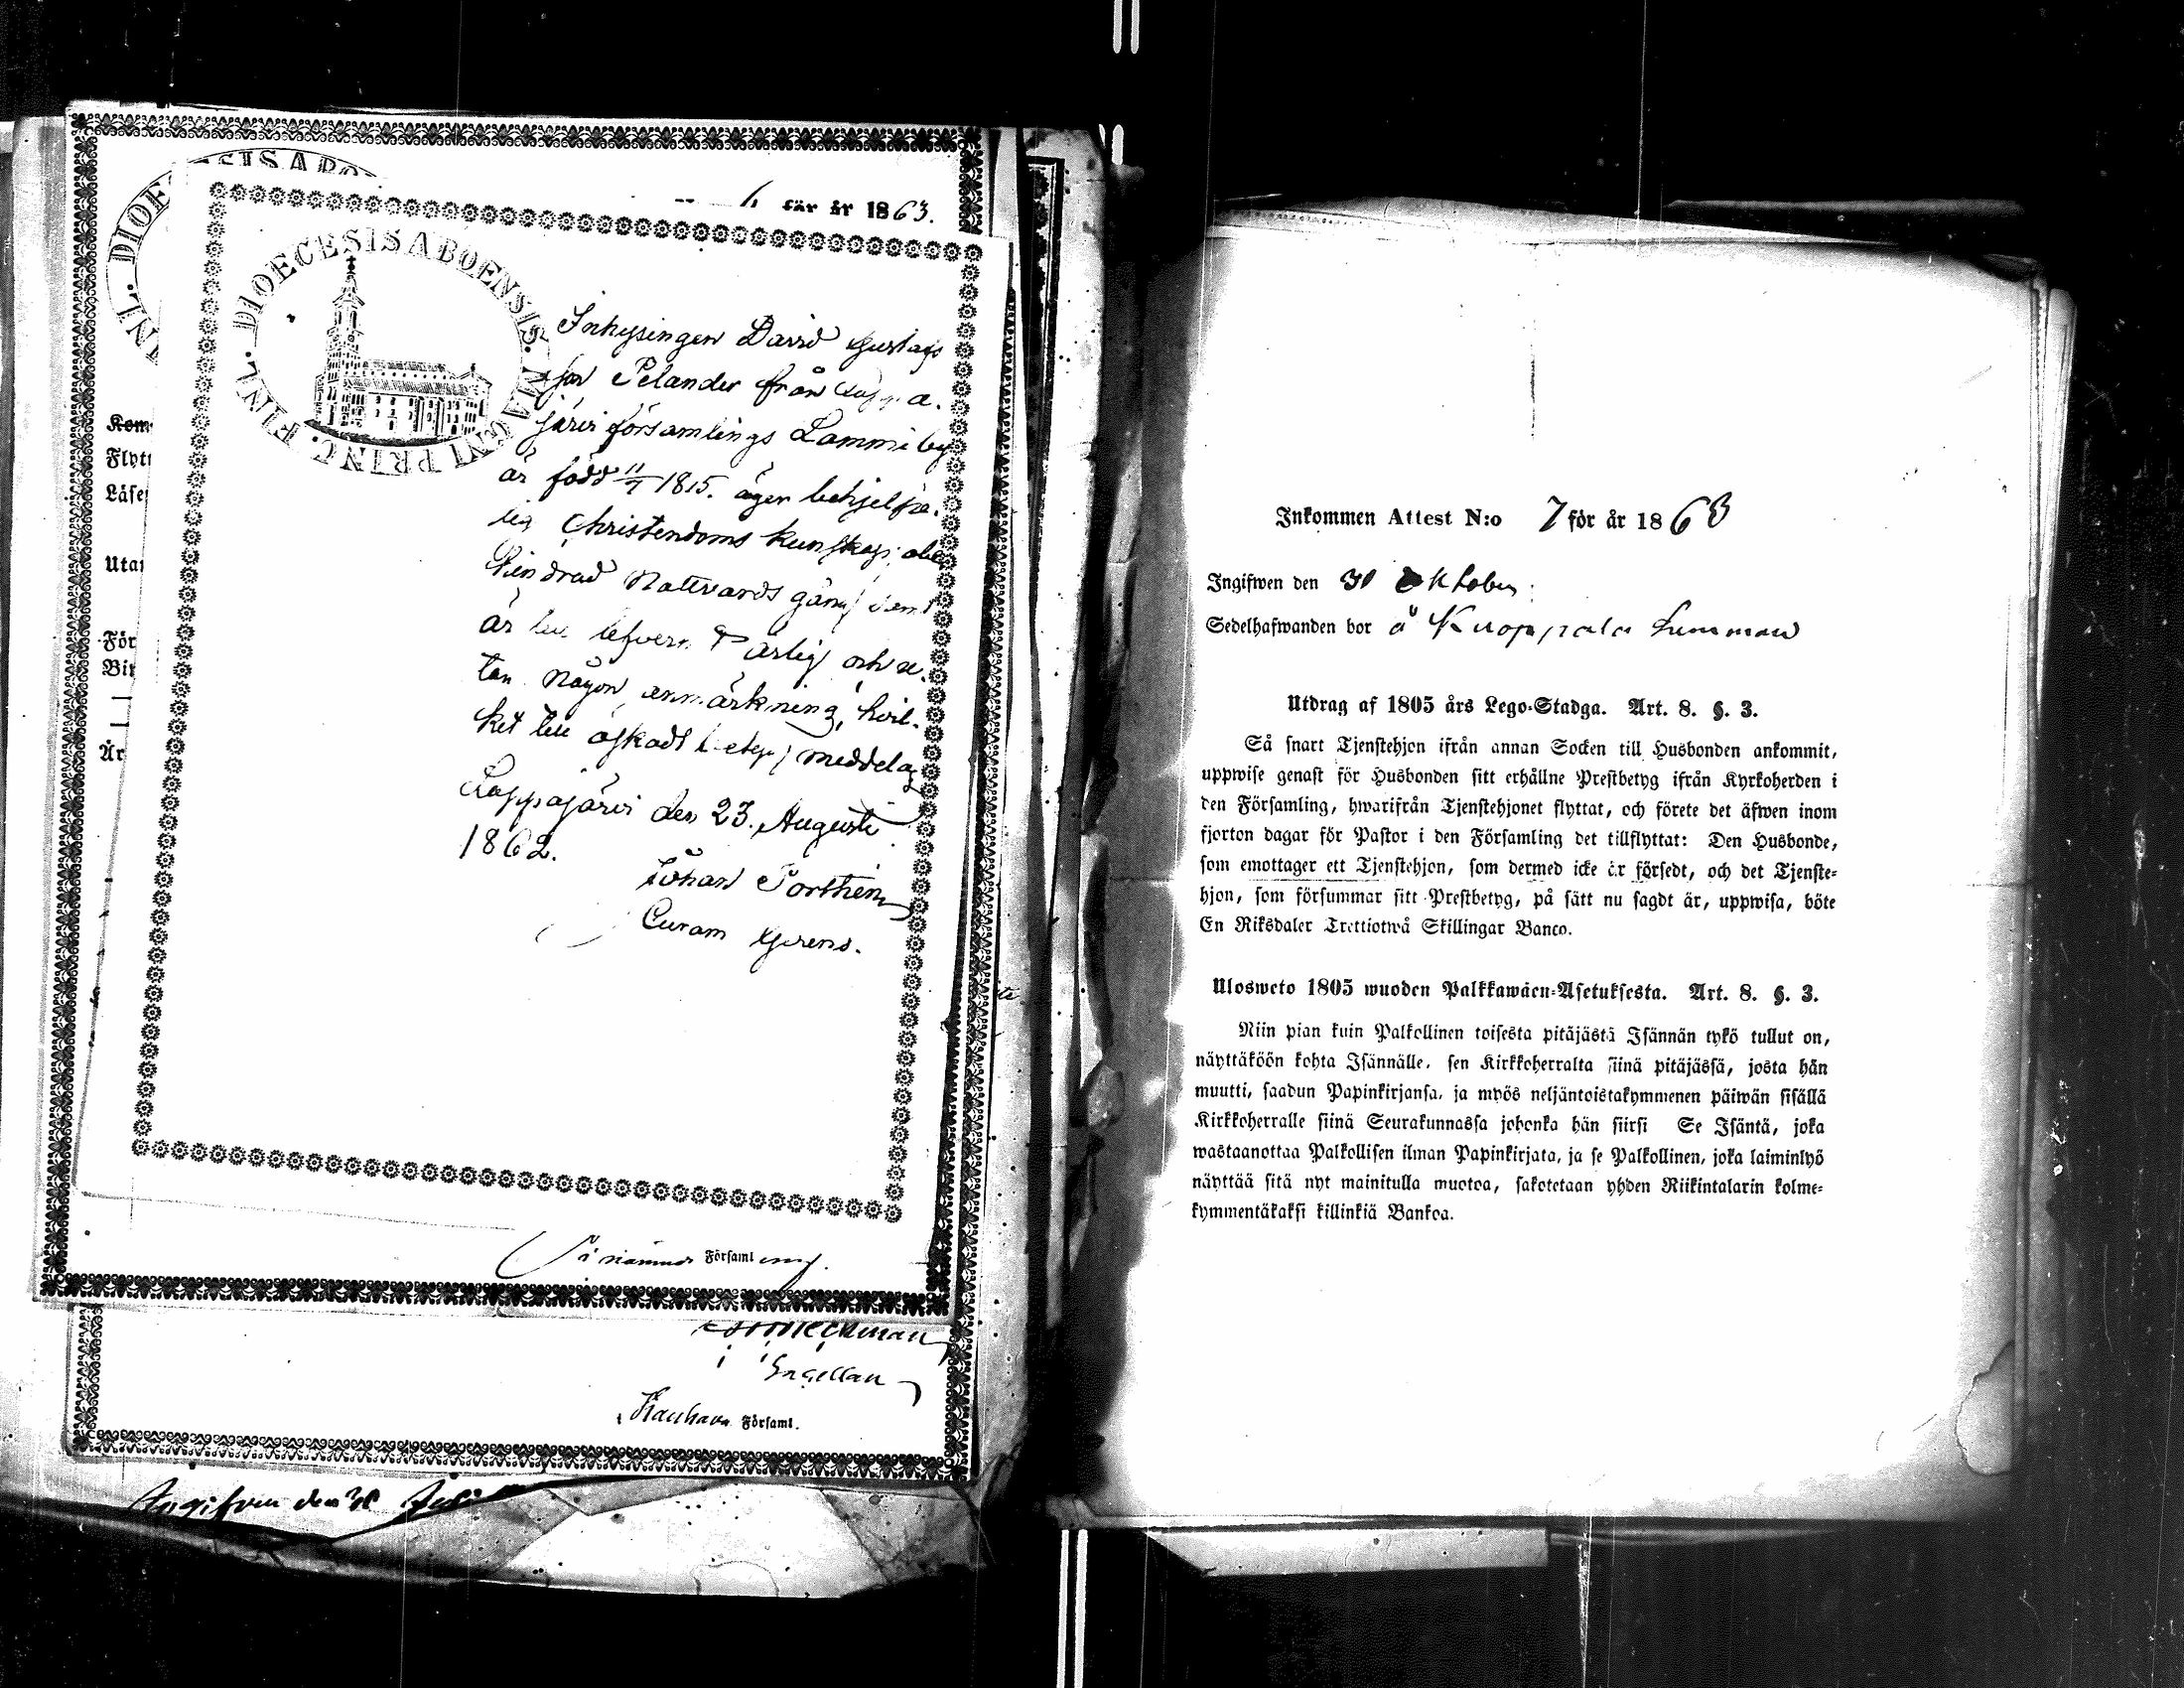 för år 1863.
DIOECESIS ABOENSIS.
DIOECESIS ABOENSIS. MAGNI PRINC. FINL.
Inhysingen David Gustafs
son Pelander från Lappa-
järvi församlings Lammi by
är född 11/7 1815. äger behjelpe-
lig Christendoms kunskap, obe
hindrad Nattvards gång samt
är till lefvern ärlig och u-
tan någon anmärkning, hvil-
ket till äskadt betyg meddelas
Lappajärvi den 23. Augusti
1862.
Johan Porthén
Curam Gerens.
Kom
Flytt
Läse
Utan
För
Bit
År
nämnde Församl ing.
Kauhava Församl.
Ingifven den 30 Juli
Inkommen Attest N:o 7 för år 1863
Ingifwen den 30 Oktober
Sedelhafwanden bor å Kuoppala hemman
Utdrag af 1805 års Lego-Stadga. Art. 8. §. 3.
Så snart Tjenstehjon ifrån annan Socken till Husbonden ankommit,
uppwise genast för Husbonden sitt erhållne Prestbetyg ifrån Kyrkoherden i
den Församling, hwarifrån Tjenstehjonet flyttat, och förete det äfwen inom
fjorton dagar för Pastor i den Församling det tillflyttat: Den Husbonde,
som emottager ett Tjenstehjon, som dermed icke är försedt, och det Tjenste-
hjon, som försummar sitt Prestbetyg, på sätt nu sagdt är, uppwisa, böte
En Riksdaler Trettiotwå Skillingar Banco.
Ulosweto 1805 wuoden Palkkawäen-Asetuksesta. Art. 8. §. 3.
Niin pian kuin Palkollinen toisesta pitäjästä Isännän tykö tullut on,
näyttäköön kohta Isännälle, sen Kirkkoherralta siinä pitäjässä, josta hän
muutti, saadun Papinkirjansa, ja myös neljäntoistakymmenen päiwän sisällä
Kirkkoherralle siinä Seurakunnassa johonka hän siirsi Se Isäntä, joka
wastaanottaa Palkollisen ilman Papinkirjata, ja se Palkollinen, joka laiminlyö
näyttää sitä nyt mainitulla muotoa, sakotetaan yhden Riikintalarin kolme-
kymmentäkaksi killinkiä Bankoa.